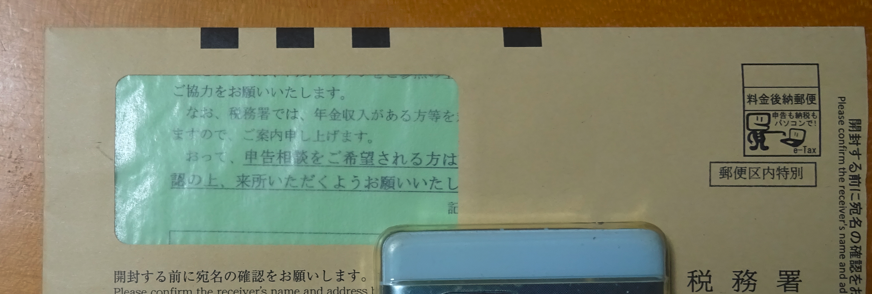 ご協力をお願いいたします。
なお、税務署では、年金収入がある方等を
ますので、ご案内申し上げます。
おって、申告相談をご希望される方は
認の上、来所いただくようお願いいたし
記
開封する前に宛名の確認をお願いします。
Please confirm the receiver's name and address
料金後納郵便
申告も納税も
パソコンで!
e-Tax
郵便区内特別
税務署
開封する前に宛名の確認をお
Please confirm the receiver's name and ad